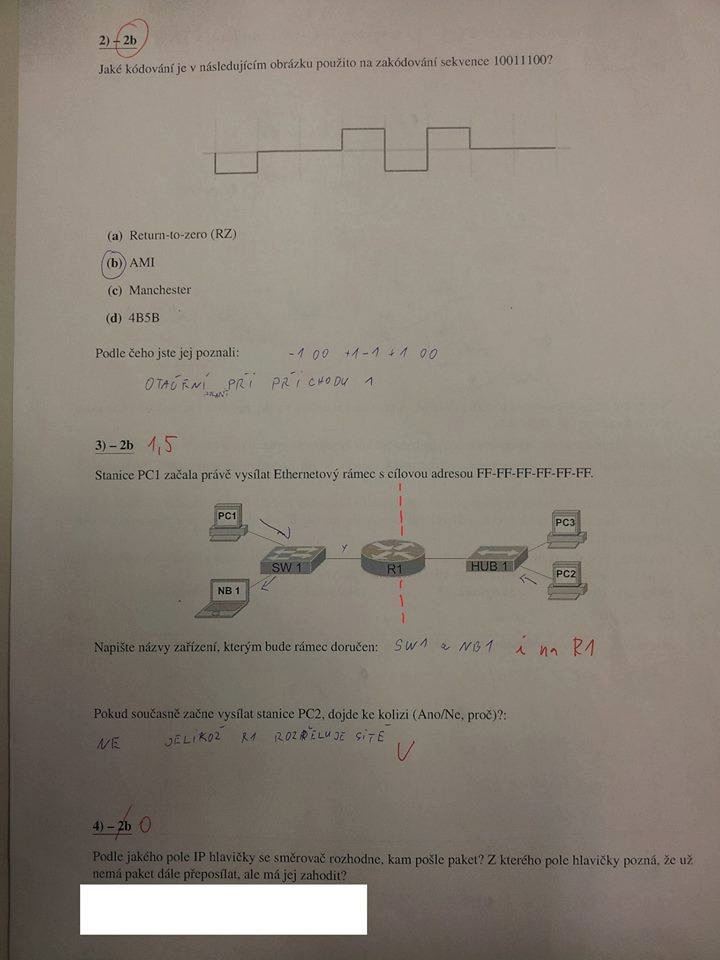 2) – 2b
Jaké kódování je v následujícím obrázku použito na zakódování sekvence 10011100?
(a) Return-to-zero (RZ)
(b) AMI
(c) Manchester
(d) 4B5B
Podle čeho jste jej poznali: -1 00 +1 -1 +1 00
OTÁČENÍ PŘI PŘÍCHODU 1
3) – 2b 1,5
Stanice PC1 začala právě vysílat Ethernetový rámec s cílovou adresou FF-FF-FF-FF-FF-FF.
PC1
PC3
SW 1
R1
HUB 1
PC2
NB 1
Napište názvy zařízení, kterým bude rámec doručen: SW1 a NB1 i na R1
Pokud současně začne vysílat stanice PC2, dojde ke kolizi (Ano/Ne, proč)?:
NE JELIKOŽ R1 ROZDĚLUJE SÍTĚ
4) – 2b 0
Podle jakého pole IP hlavičky se směrovač rozhodne, kam pošle paket? Z kterého pole hlavičky pozná, že už
nemá paket dále přeposílat, ale má jej zahodit?